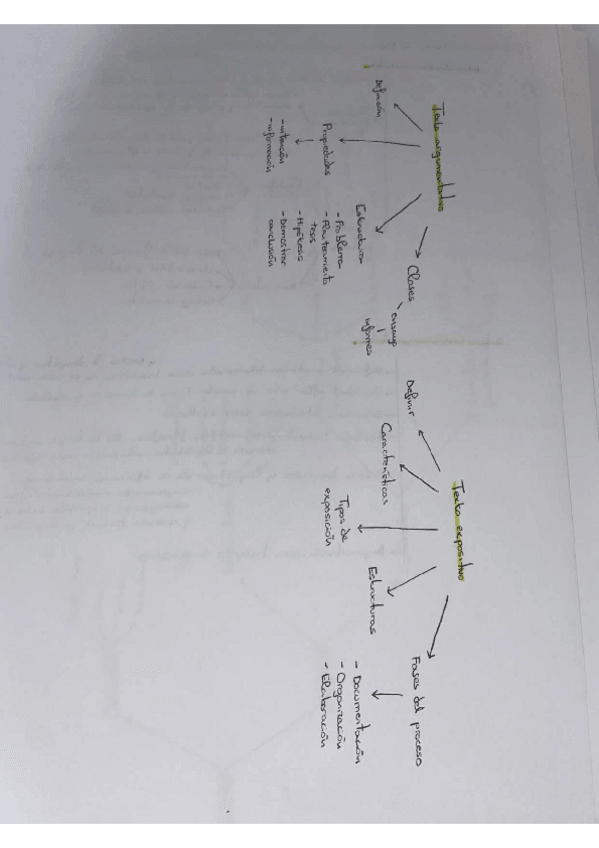 Texto argumentativo
Definición
Propiedades
- intención
- información
Estructura
- Problema
- Planteamiento
tesis
- Hipótesis
- Demostrar
conclusión
Clases
ensayo
informes
Texto expositivo
Definir
Características
Tipos de
exposición
Estructuras
Fases del proceso
- Documentación
- Organización
- Elaboración